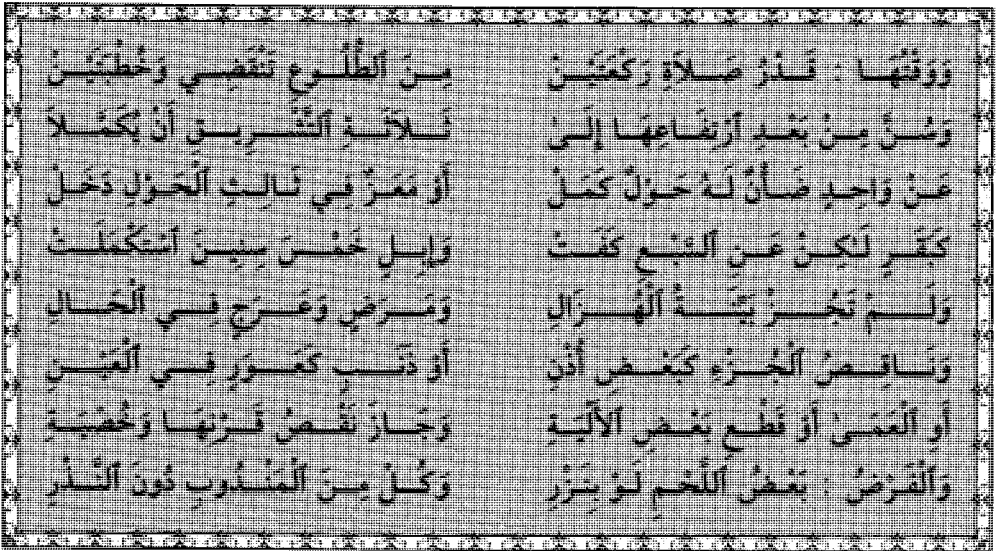 وَوَقْتُهَا : قَدْرُ صَلَاةِ رَكْعَتَيْنْ مِنَ ٱلطُّلُوعِ تَنْقَضِي وَخُطْبَتَيْنْ
وَسُنَّ مِنْ بَعْدِ ٱرْتِفَاعِهَا إِلَىٰ ثَلَاثَةِ ٱلتَّشْرِيقِ أَنْ يُكَمَّلَا
عَنْ وَاحِدٍ ضَأْنٌ لَهُ حَوْلٌ كَمَلْ أَوْ مَعَزٌ فِي ثَالِثِ ٱلْحَوْلِ دَخَلْ
كَبَقَرٍ لَكِنْ عَنِ ٱلسَّبْعِ كَفَتْ وَإِبِلٍ خَمْسَ سِنِينَ ٱسْتَكْمَلَتْ
وَلَمْ تَجُزْ بَيِّنَةُ ٱلْهُزَالِ وَمَرَضٍ وَعَرَجٍ فِي ٱلْحَالِ
وَنَاقِصُ ٱلْجُزْءِ كَبَعْضِ أُذْنِ أَوْ ذَنَبٍ كَعَوَرٍ فِي ٱلْعَيْنِ
أَوِ ٱلْعَمَىٰ أَوْ قَطْعِ بَعْضِ ٱلْأَلْيَةِ وَجَازَ نَقْصُ قَرْنِهَا وَخُصْيَةِ
وَٱلْفَرْضُ : بَعْضُ ٱللَّحْمِ لَوْ بِنَزْرِ وَكُلْ مِنَ ٱلْمَنْدُوبِ دُونَ ٱلنَّذْرِ